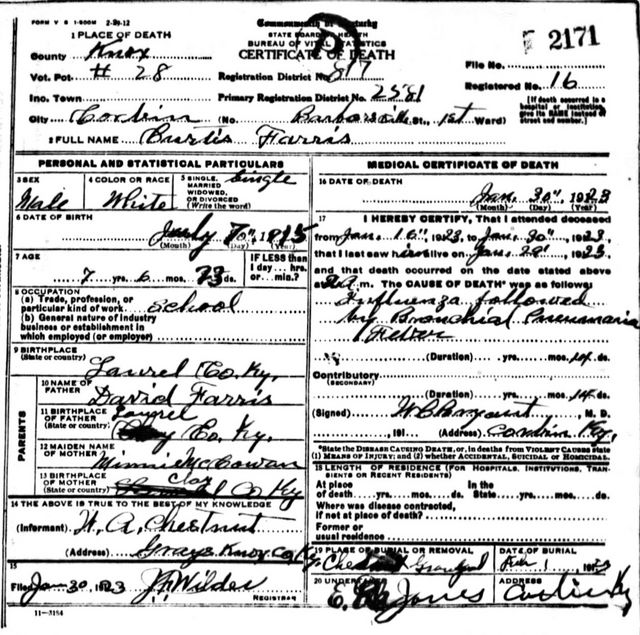 FORM V S 1-500M 2-29-12
Commonwealth of Kentucky
STATE BOARD OF HEALTH
BUREAU OF VITAL STATISTICS
CERTIFICATE OF DEATH
1 PLACE OF DEATH
County Knox
File No. 2171
Vot. Pct. # 28 Registration District No. 617
Registered No. 16
Inc. Town Primary Registration District No. 2581
[If death occurred in a hospital or institution, give its NAME instead of street and number.]
City Corbin (No. Barbourville St., 1st Ward)
2 FULL NAME Curtis Farris
PERSONAL AND STATISTICAL PARTICULARS
3 SEX Male
4 COLOR OR RACE White
5 SINGLE, MARRIED WIDOWED, OR DIVORCED (Write the word) Single
6 DATE OF BIRTH
July (Month) (Day) 1915 (Year)
7 AGE
7 yrs. 6 mos. 23 ds.
IF LESS than 1 day ... hrs. or min.?
8 OCCUPATION
(a) Trade, profession, or particular kind of work School
(b) General nature of industry business or establishment in which employed (or employer)
9 BIRTHPLACE (State or country) Laurel Co. Ky.
PARENTS
10 NAME OF FATHER David Farris
11 BIRTHPLACE OF FATHER (State or country) Laurel Co. Ky.
12 MAIDEN NAME OF MOTHER Minnie McCowan
13 BIRTHPLACE OF MOTHER (State or country) Clay Co Ky
14 THE ABOVE IS TRUE TO THE BEST OF MY KNOWLEDGE
(Informant) W. A. Chestnut
(Address) Grays Knox Co Ky
15
Filed Jan 30, 1923 J. P. Wilder
REGISTRAR
11-3184
MEDICAL CERTIFICATE OF DEATH
16 DATE OF DEATH
Jan. 30" 1923
(Month) (Day) (Year)
17 I HEREBY CERTIFY, That I attended deceased
from Jan. 16", 1923, to Jan. 30", 1923,
that I last saw him alive on Jan. 29", 1923,
and that death occurred on the date stated above
at m. The CAUSE OF DEATH* was as follows:
Influenza followed
by Bronchial Pneumonia
Fever
(Duration) yrs. mos. 14 ds.
Contributory (SECONDARY)
(Duration) yrs. mos. 14 ds.
(Signed) M. D.
, 191 (Address) Corbin Ky.
*State the DISEASE CAUSING DEATH, or, in deaths from VIOLENT CAUSES state (1) MEANS OF INJURY; and (2) whether ACCIDENTAL, SUICIDAL or HOMICIDAL.
18 LENGTH OF RESIDENCE (FOR HOSPITALS, INSTITUTIONS, TRANSIENTS OR RECENT RESIDENTS)
At place of death yrs. mos. ds. In the State yrs. mos. ds.
Where was disease contracted, if not at place of death?
Former or usual residence
19 PLACE OF BURIAL OR REMOVAL Graveyard
DATE OF BURIAL 1 1923
20 UNDERTAKER E. Jones
ADDRESS Corbin Ky